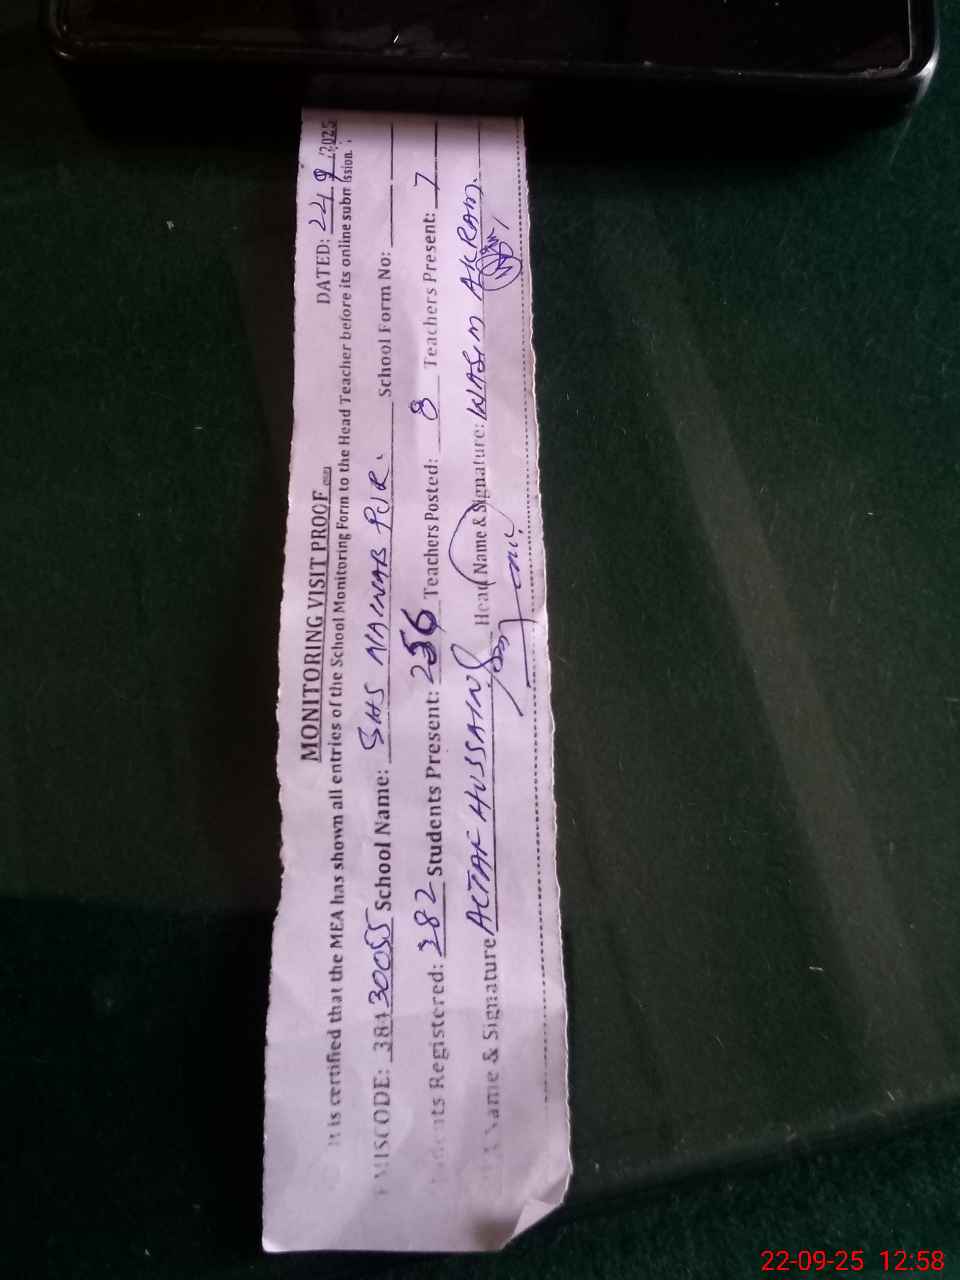 MONITORING VISIT PROOF
DATED: 22/9/2025
It is certified that the MEA has shown all entries of the School Monitoring Form to the Head Teacher before its online submission.
EMISCODE: 38130055 School Name: GHS NAINAB PUR. School Form No:
Students Registered: 282 Students Present: 256 Teachers Posted: 8 Teachers Present: 7
Name & Signature ALTAF HUSSAIN Head Name & Signature: WASIM AKRAM.
22-09-25 12:58